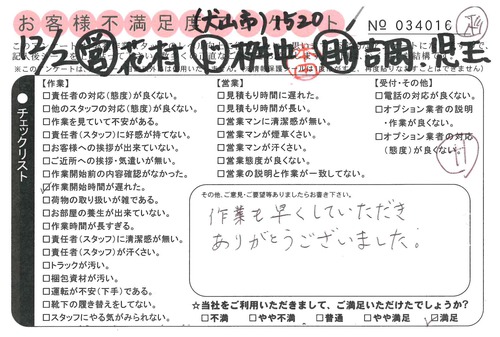 お客様不満足度 ート
(犬山市)1520
No 034016
12/2 営花村 ド桝中 助吉岡 児玉
チェックリスト
【作業】
□責任者の対応(態度)が良くない。
□他のスタッフの対応(態度)が良くない。
□作業を見ていて不安がある。
□責任者(スタッフ)に好感が持てない。
□お客様への挨拶が出来ていない。
□ご近所への挨拶・気遣いが無い。
□作業開始前の内容確認がなかった。
☑作業開始時間が遅れた。
□荷物の取り扱いが雑である。
□お部屋の養生が出来ていない。
□作業時間が長すぎる。
□責任者(スタッフ)に清潔感が無い。
□責任者(スタッフ)が汗くさい。
□トラックが汚い。
□梱包資材が汚い。
□運転が不安(下手)である。
□靴下の履き替えをしてない。
□スタッフにやる気がみられない。
【営業】
□見積もり時間に遅れた。
□見積もり時間が長い。
□営業マンに清潔感が無い。
□営業マンが煙草くさい。
□営業マンが汗くさい。
□営業態度が良くない。
□営業の説明と作業が一致してない。
【受付・その他】
□電話の対応が良くない。
□オプション業者の説明
・作業が良くない。
□オプション業者の対応
(態度)が良くない。
その他、ご意見・ご要望等ありましたらお書き下さい。
作業も早くしていただき
ありがとうございました。
☆当社をご利用いただきまして、ご満足いただけたでしょうか?
□不満 □やや不満 □普通 □やや満足 ☑満足